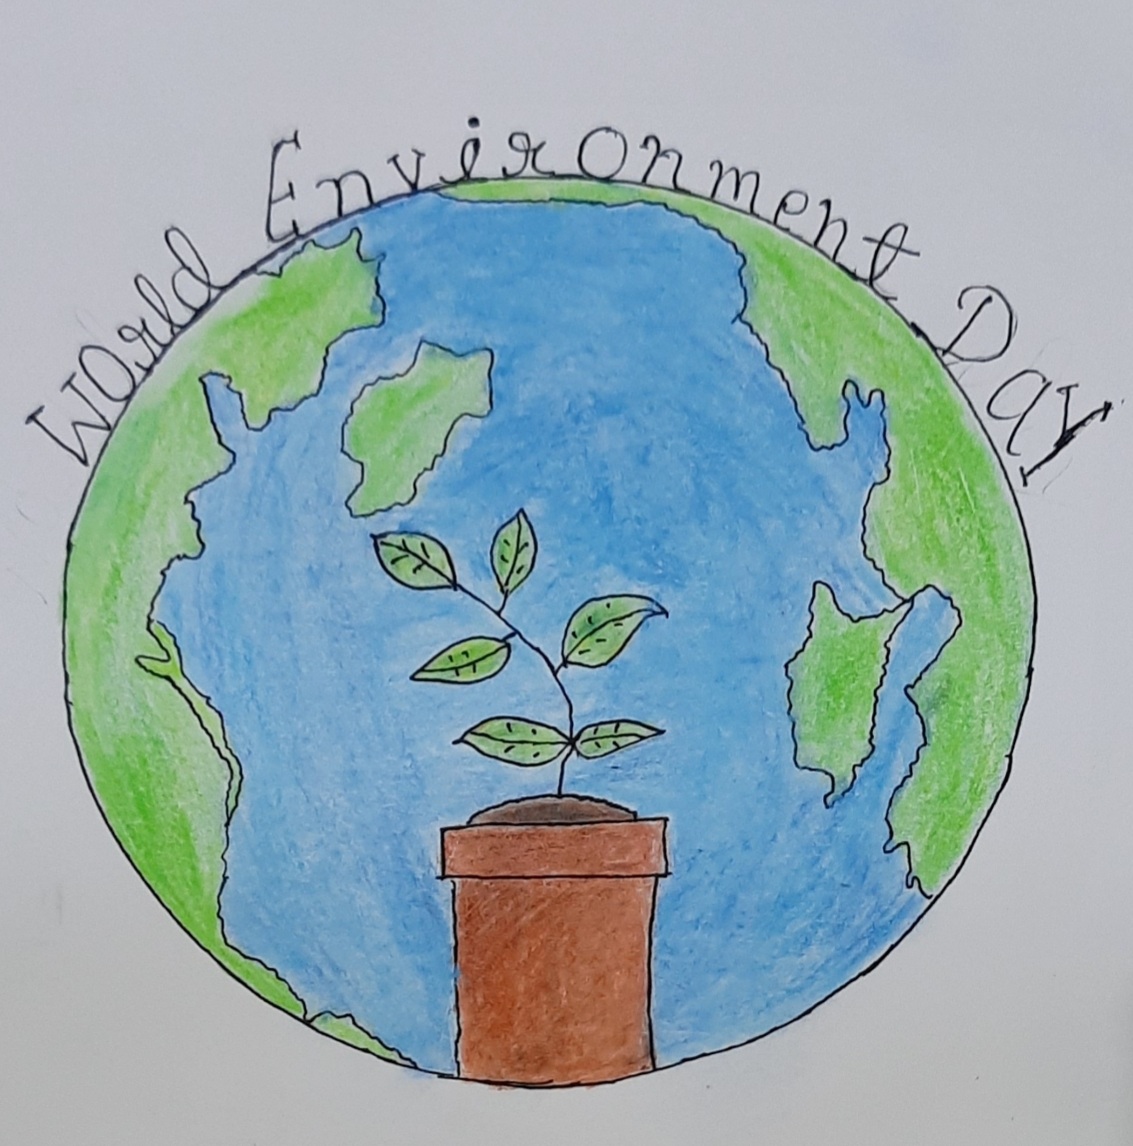 World Environment Day